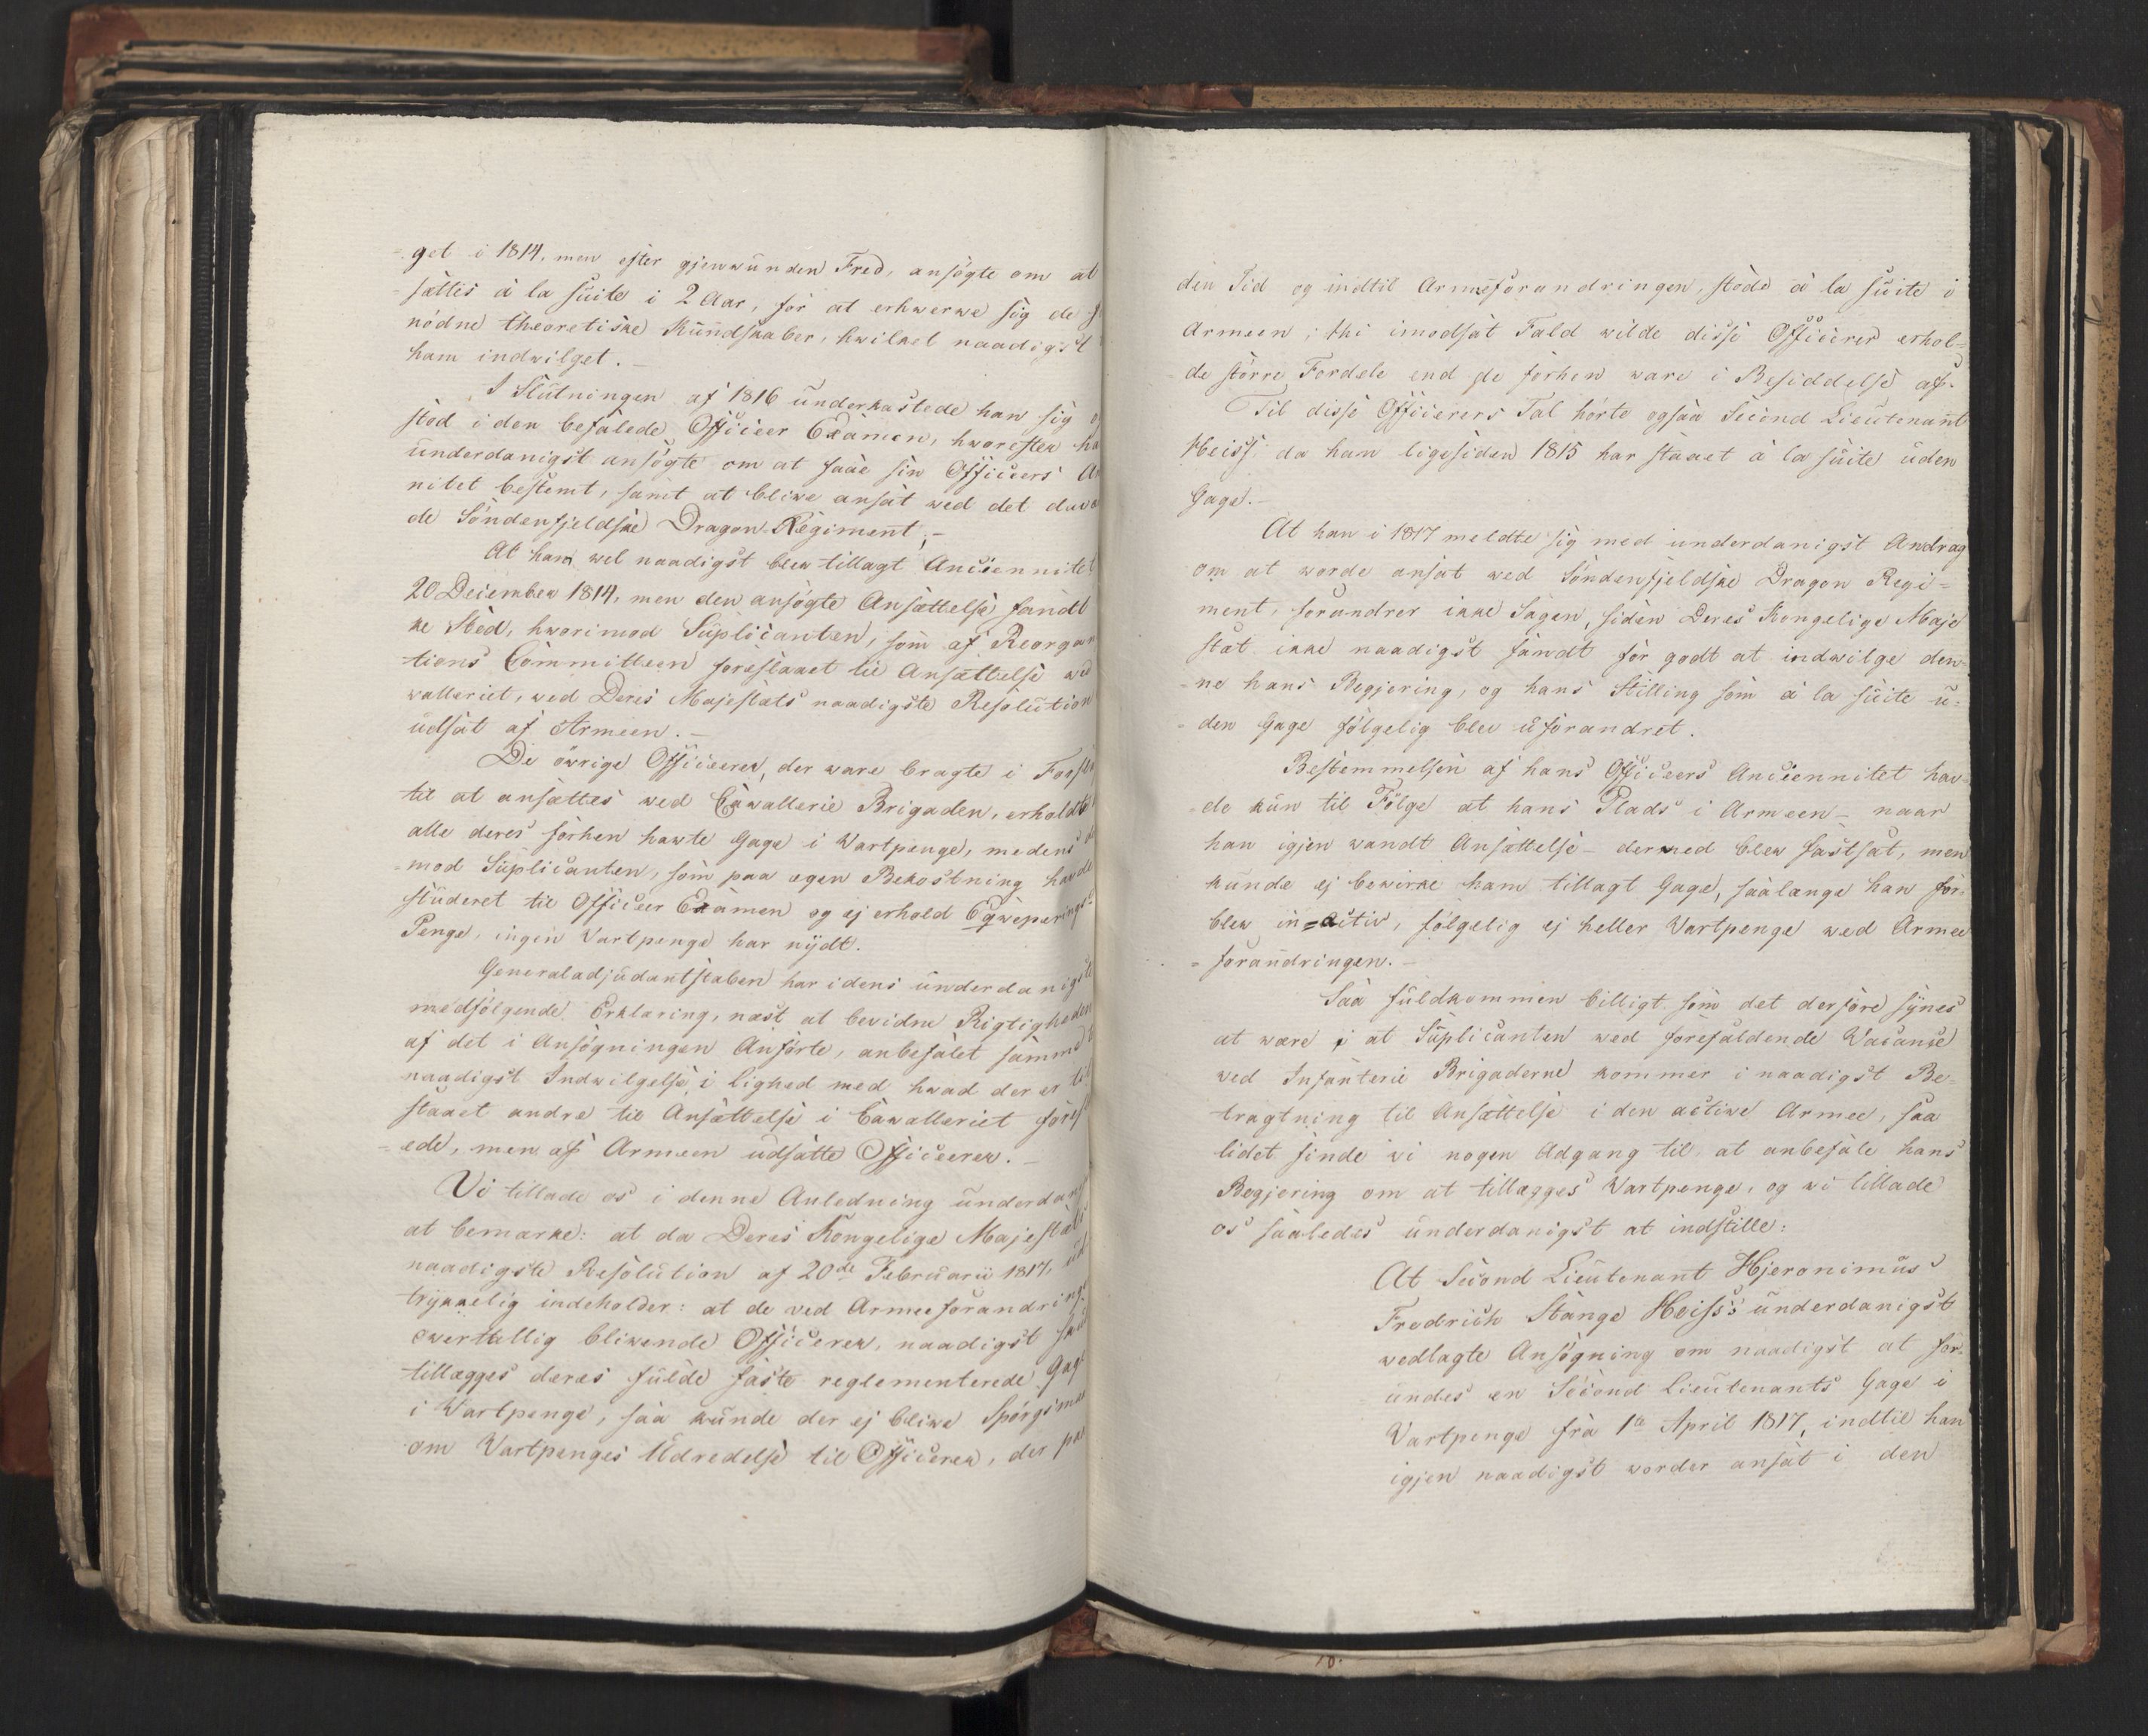 get i 1814, men efter gjenwunden Fred, ansøgte om at
sættes à la suite i 2 Aar, for at erhwerwe sig de
nödne theoretiske Kundskaber, hwilket naadigst
ham indwilget. -
I Slutningen af 1816 underkastede han sig
stod i den befalede Officeer Examen, hworefter
underdanigst ansögte om at faae sin Officeers
nitet bestemt, samt at bliwe ansat wed det
de Söndenfjeldske Dragon-Regiment; -
At ham wel naadigst blew tillagt Anciennitet
20 December 1814, men den ansögte Ansættelse fandt
ke Sted, hworimod Suplicanten, som af Reorgan
tions Committeen foreslaaet til Ansættelse wed
walleriet, wed Deres Majestæts naadigste Resolution
udsat af Armeen. -
De öwrige Officeerer, der ware bragte i Forsla
til at ansættes wed Cawallerie Brigaden, erholdte
alle deres forhen hawte Gage i Vartpenge, medens
mod Suplicanten, som paa egen Bekostning hawde
studeret til Officeer Examen og ej erhold Eqweperings
Penge, ingen Vartpenge har nydt.
Generaladjudantstaben har i dens underdanigste
medfölgende Erklæring, næst at bevidne Rigtigheden
af det i Ansögningen Anförte, anbefalet samme
naadigst Indwilgelse i Lighed med hwad der er
staaet andre til Ansættelse i Cawalleriet foresl
ede, men af Armeen udsatte Officeerer. -
Vi tillade os i denne Anledning underdanigst
at bemærke: at da Deres Kongelige Majestæts
naadigste Resolution af 20de Februarii 1817, ud
trykkelig indeholder: at de ved Armeeforandringen
owertallig bliwende Officerer, naadigst
tillægges deres fulde faste reglementerede Gage
i Wartpenge, saa kunde der ej bliwe Spörgsmaa
om Vartpenges Udredelse til Officerer, der paa
den Tid og indtil Armeeforandringen, stode à la suite i
Armeen; thi imodsat Fald wilde disse Officerer erhol=
de större Fordele end de forhen ware i Besiddelse af.
Til disse Officerers Tal hörte ogsaa Second Lieutenant
Heiss, da han ligesiden 1815 har staaet à la suite uden
Gage. -
At han i 1817 meldte sig med underdanigst Andrag
om at worde ansat wed Söndenfjeldske Dragon Regi=
ment, forandrer ikke Sagen, siden Deres Kongelige Maje
stæt ikke naadigst fandt for godt at indwilge den=
ne hans Begjering, og hans Stilling som à la suite u=
den Gage fölgelig blev uforandret.
Bestemmelsen af hans Officeers Anciennitet haw=
de kun til Fölge at hans Plads i Armeen - naar
han igjen wandt Ansættelse - dermed blew fastsat, men
kunde ej bewirke ham tillagt Gage, saalænge han for=
blew in=activ, fölgelig ej heller Vartpenge wed Armee
forandringen. -
Saa fuldkommen billigt som det derfore synes
at være, at Suplicanten wed forefaldende Vacance
wed Infanterie Brigaderne kommer i naadigst Be=
tragtning til Ansættelse i den active Armee, saa
lidet finde wi nogen Adgang til at anbefale hans
Begjering om at tillægges Vartpenge, og wi tillade
os saaledes underdanigst at indstille:
At Second Lieutenant Hjeronimus
Fredrich Stange Heiss's underdanigst
wedlagte Ansögning om naadigst at for=
undes en Second Lieutenants Gage i
Vartpenge fra 1te April 1817, indtil han
igjen naadigst worder ansat i den